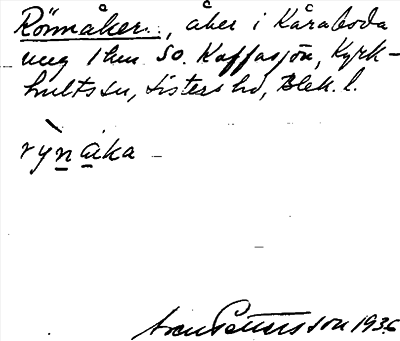 Rönnåker, åker i Kåraboda
ung 1 km SO. Kaffasjön, Kyrk-
hults sn, Listers hd, Blek. l.
rỳnåka
Sven Pettersson 1936